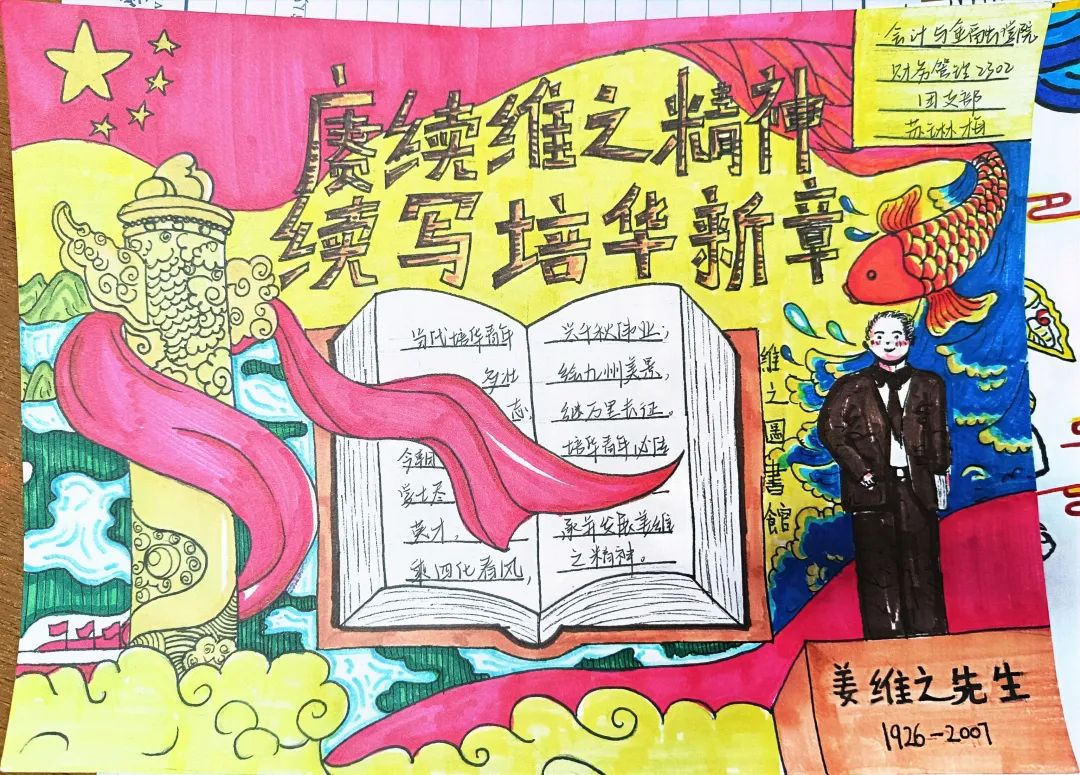 会计与金融学院
财务管理2302
团支部
赓续维之精神
续写培华新章
当代培华青年
多壮
志
今朝
学士尽
英才,
乘四化春风,
兴千秋伟业;
绘九州美景,
继万里长征。
培华青年必传
承并发展姜维
之精神。
維之圖書館
姜维之先生
1926-2007